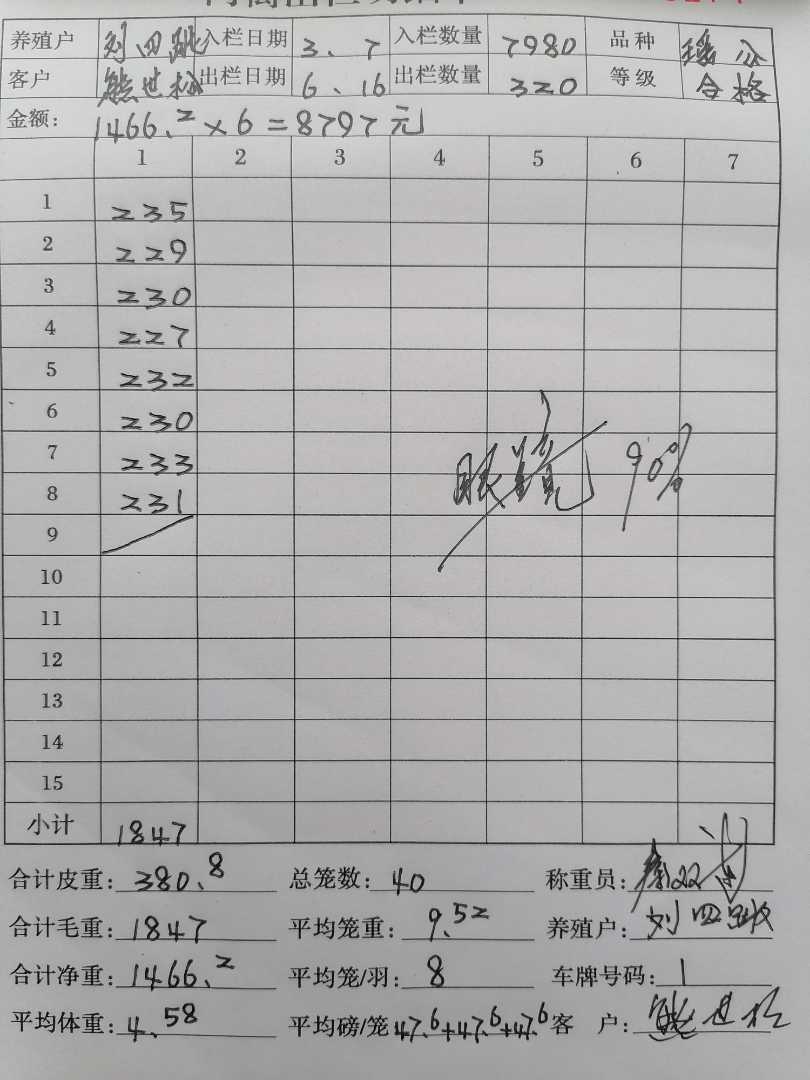 养殖户 刘四跳 入栏日期 3.7 入栏数量 7980 品种
客户 熊世松 出栏日期 6.16 出栏数量 320 等级 合格
金额: 1466.2×6=8797元
1 2 3 4 5 6 7
1 235
2 229
3 230
4 227
5 232
6 230
7 233
8 231
眼镜 90%
9
10
11
12
13
14
15
小计 1847
合计皮重: 380.8 总笼数: 40 称重员:
合计毛重: 1847 平均笼重: 9.52 养殖户: 刘四跳
合计净重: 1466.2 平均笼/羽: 8 车牌号码: 1
平均体重: 4.58 平均磅/笼 47.6+47.6+47.6 客 户: 熊世松